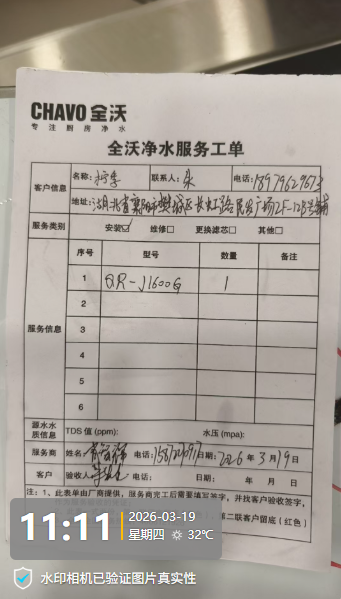 CHAVO 全沃
专注厨房净水
全沃净水服务工单
客户信息 名称: 联系人: 朱 电话: 18979629673
地址: 湖北省襄阳樊城区长虹路民发广场2F-12B号铺
服务类别 安装☑ 维修□ 更换滤芯□ 其他□
服务信息 序号 型号 数量 备注
1 QR-J1600G 1
2
3
4
5
6
源水水质信息 TDS 值 (ppm): 水压 (mpa):
服务商 姓名: 电话: 日期: 2026 年 3 月 19 日
客户 验收人: 电话: 日期: 年 月 日
注: 1、此表单由厂商提供，服务商完工后需要填写签字，并找客户验收签字，
第二联客户留底 (红色)
11:11
2026-03-19
星期四 32℃
水印相机已验证图片真实性